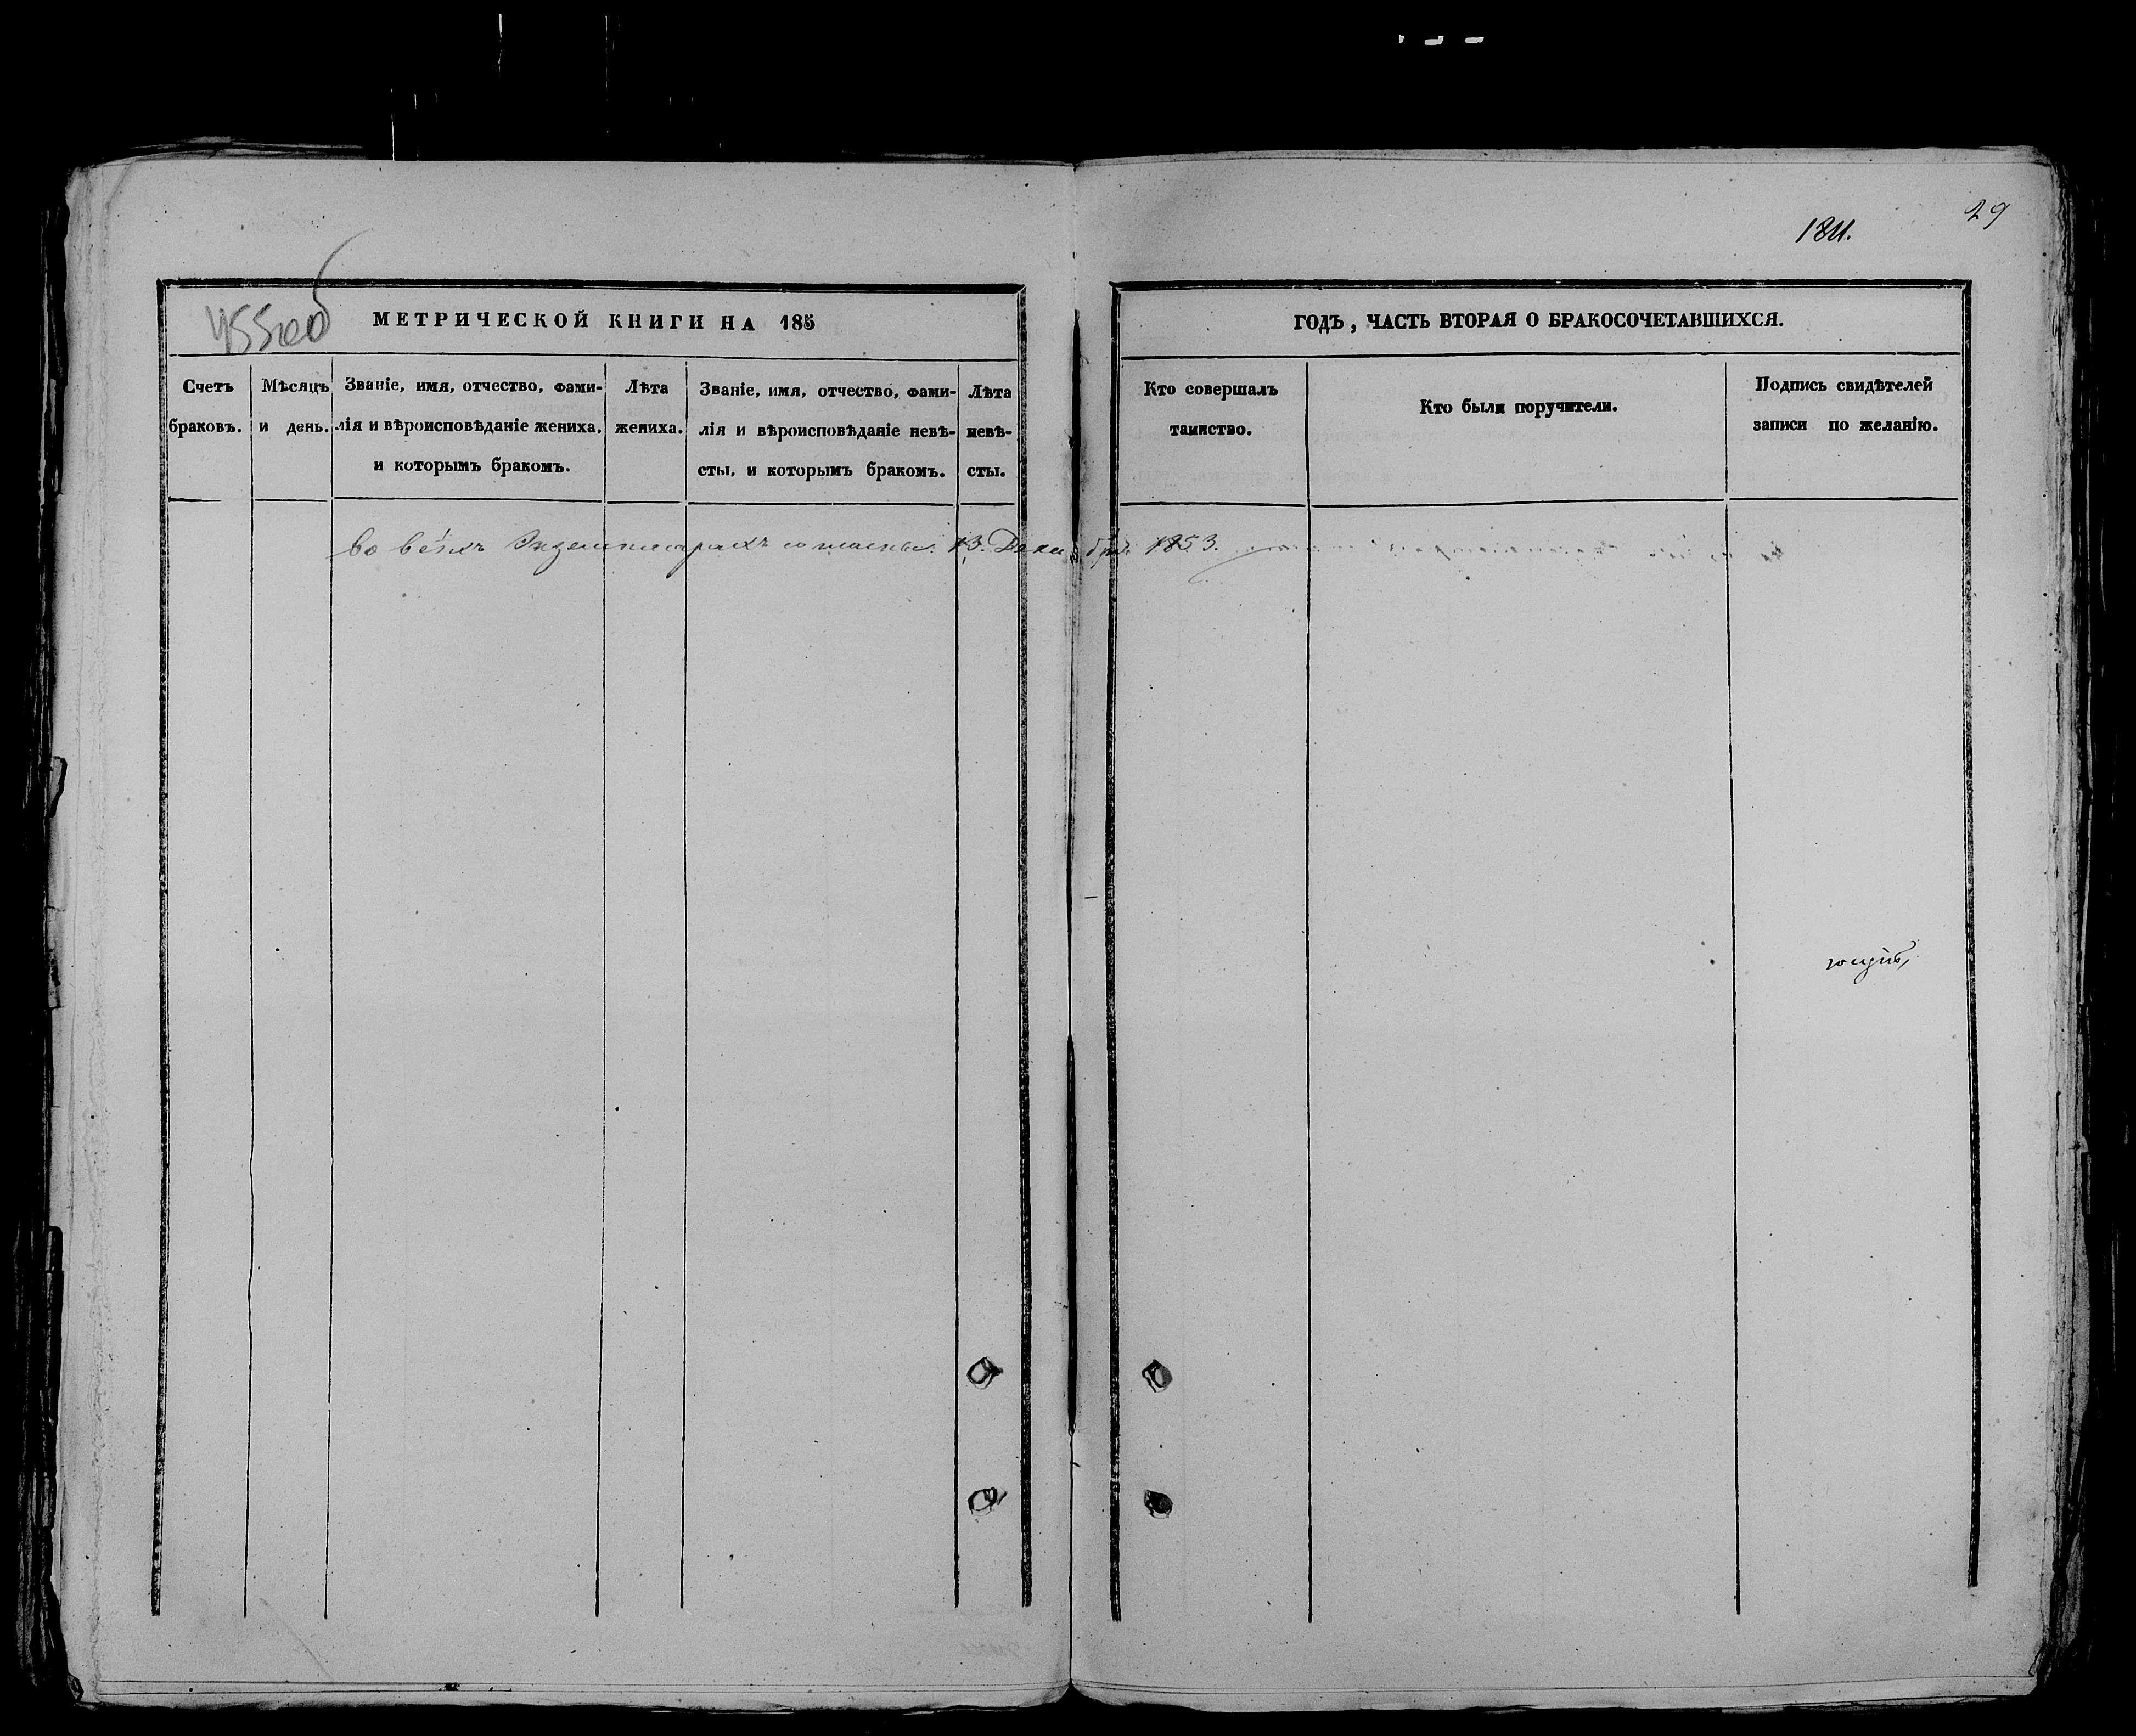 29
1811.
МЕТРИЧЕСКОЙ КНИГИ НА 185
ГОДЪ, ЧАСТЬ ВТОРАЯ О БРАКОСОЧЕТАВШИХСЯ.
Счетъ
браковъ.
Мѣсяцъ
и день.
Званіе, имя, отчество, фами-
лія и вѣроисповѣданіе жениха,
и которымъ бракомъ.
Лѣта
жениха.
Званіе, имя, отчество, фами-
лія и вѣроисповѣданіе невѣ-
сты, и которымъ бракомъ.
Лѣта
невѣ-
сты.
Кто совершалъ
таинство.
Кто были поручители.
Подпись свидѣтелей
записи по желанію.
во всѣхъ Экземплярахъ согласны. 13. Декабря 1853.
ющій